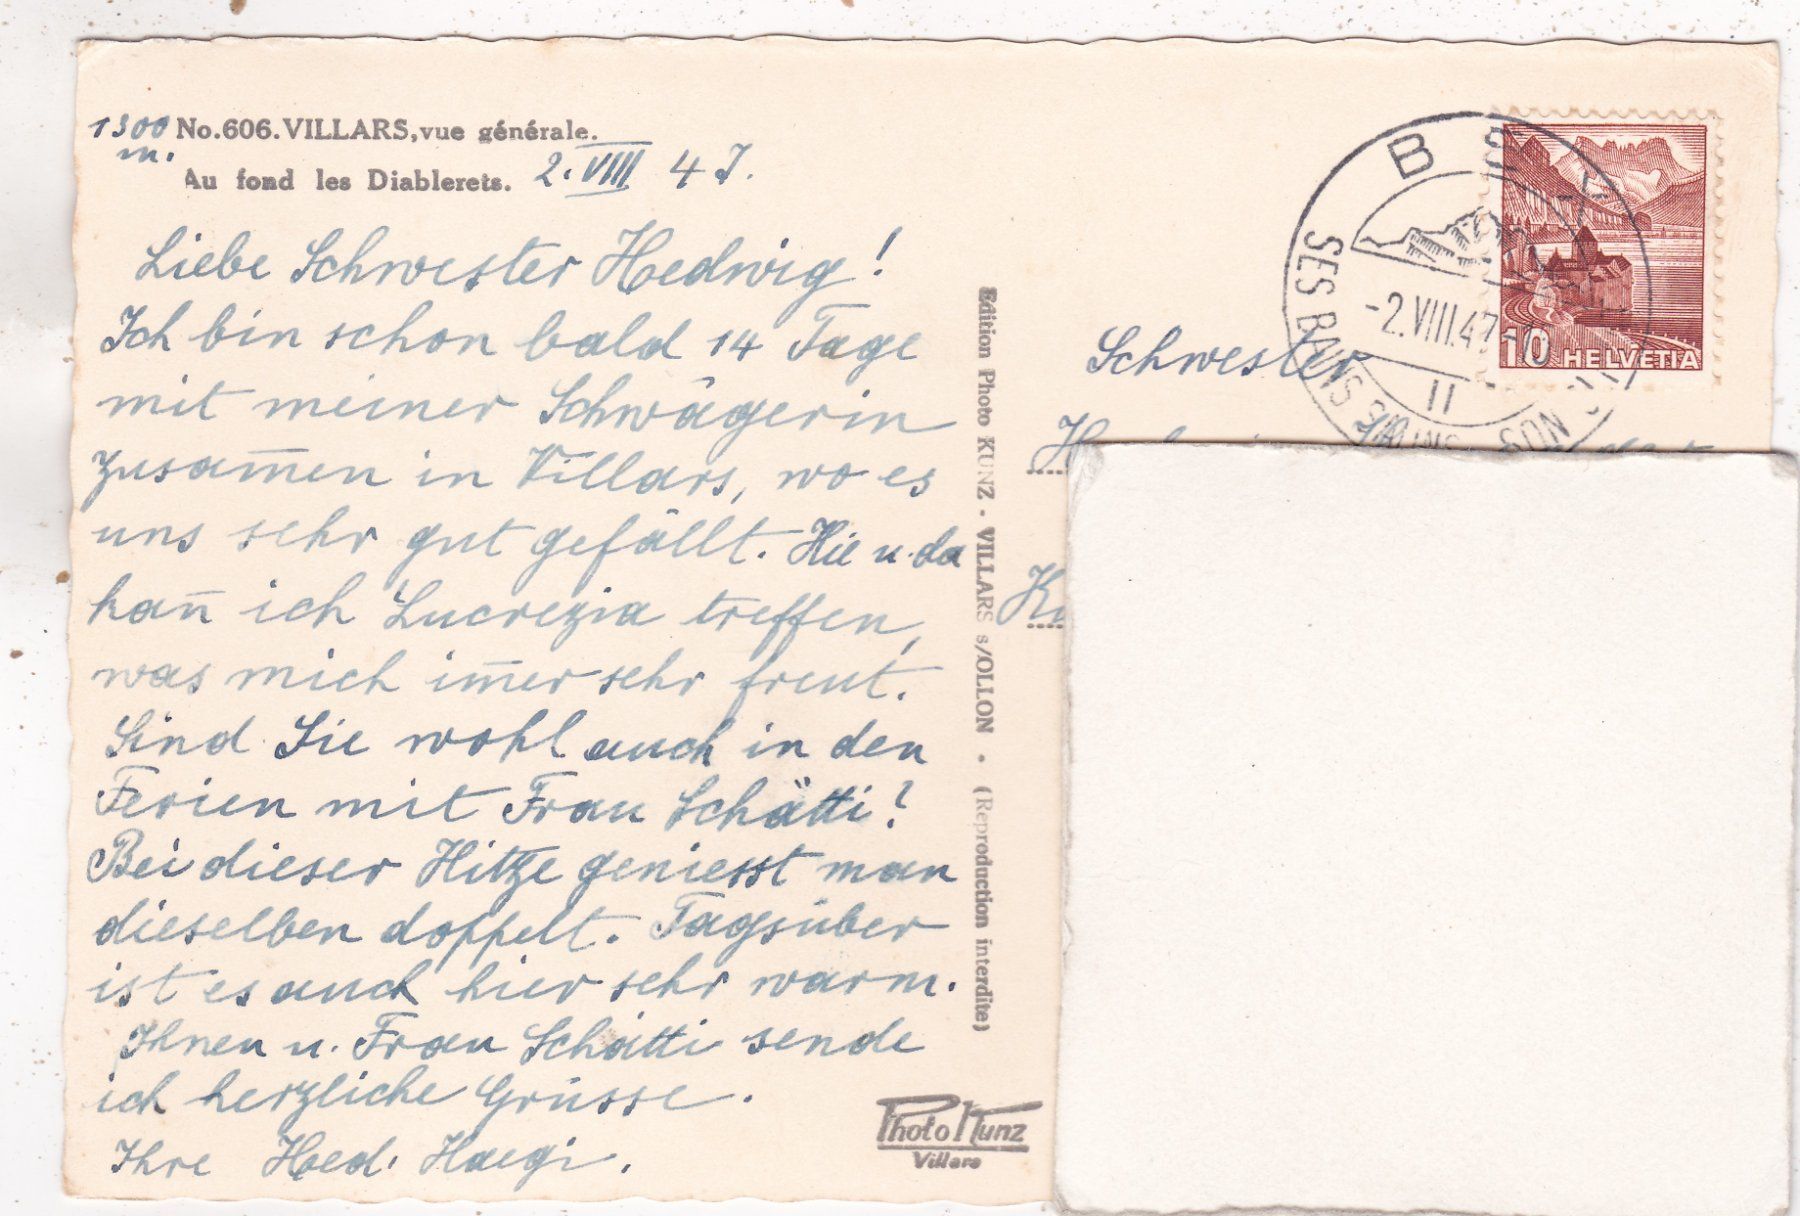 1300 No.606.VILLARS,vue générale.
m.
Au fond les Diablerets. 2. VIII 47.
Liebe Schwester Hedwig!
Ich bin schon bald 14 Tage
mit meiner Schwägerin
zusam̅en in Villars, wo es
uns sehr gut gefällt. Hie u. da
kan̅ ich Lucrezia treffen,
was mich im̅er sehr freut.
Sind Sie wohl auch in den
Ferien mit Frau Schätti?
Bei dieser Hitze geniesst man
dieselben doppelt. Tagsüber
ist es auch hier sehr warm.
Ihnen u. Frau Schätti sende
ich herzliche Grüsse.
Ihre Hed. Haegi.
Edition Photo KUNZ - VILLARS s/OLLON • (Reproduction interdite)
Photo Kunz
Villars
BEX
SES BAINS SALINS
-2.VIII.47-10
II
10 HELVETIA
Schwester